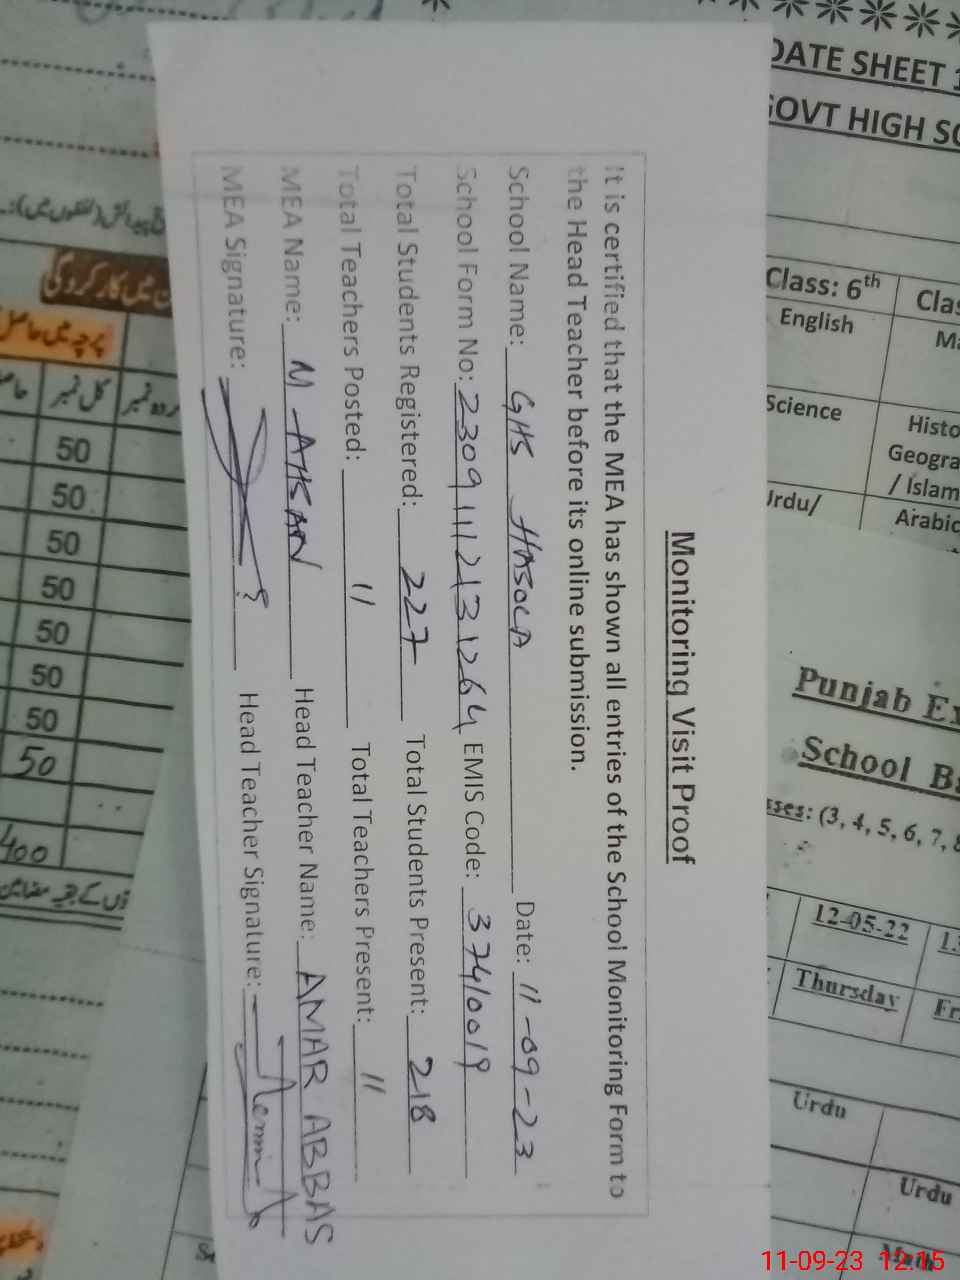 Monitoring Visit Proof
It is certified that the MEA has shown all entries of the School Monitoring Form to
the Head Teacher before its online submission.
School Name: GHS HASOLA Date: 11-09-23
School Form No: 23091112131264 EMIS Code: 37410019
Total Students Registered: 227 Total Students Present: 218
Total Teachers Posted: 11 Total Teachers Present: 11
MEA Name: M AHSAN Head Teacher Name: AMAR ABBAS
MEA Signature: Head Teacher Signature:
DATE SHEET
GOVT HIGH
Class: 6th
English
Science
Urdu/
Histo
Geogra
/ Islam
Arabic
Punjab Ex
School Ba
sses: (3, 4, 5, 6, 7, 8
12-05-22
Thursday
Fr
Urdu
Urdu
Math
کل نمبر
پرچہ میں حاصل
50
50
50
50
50
50
50
50
400
11-09-23 12:15